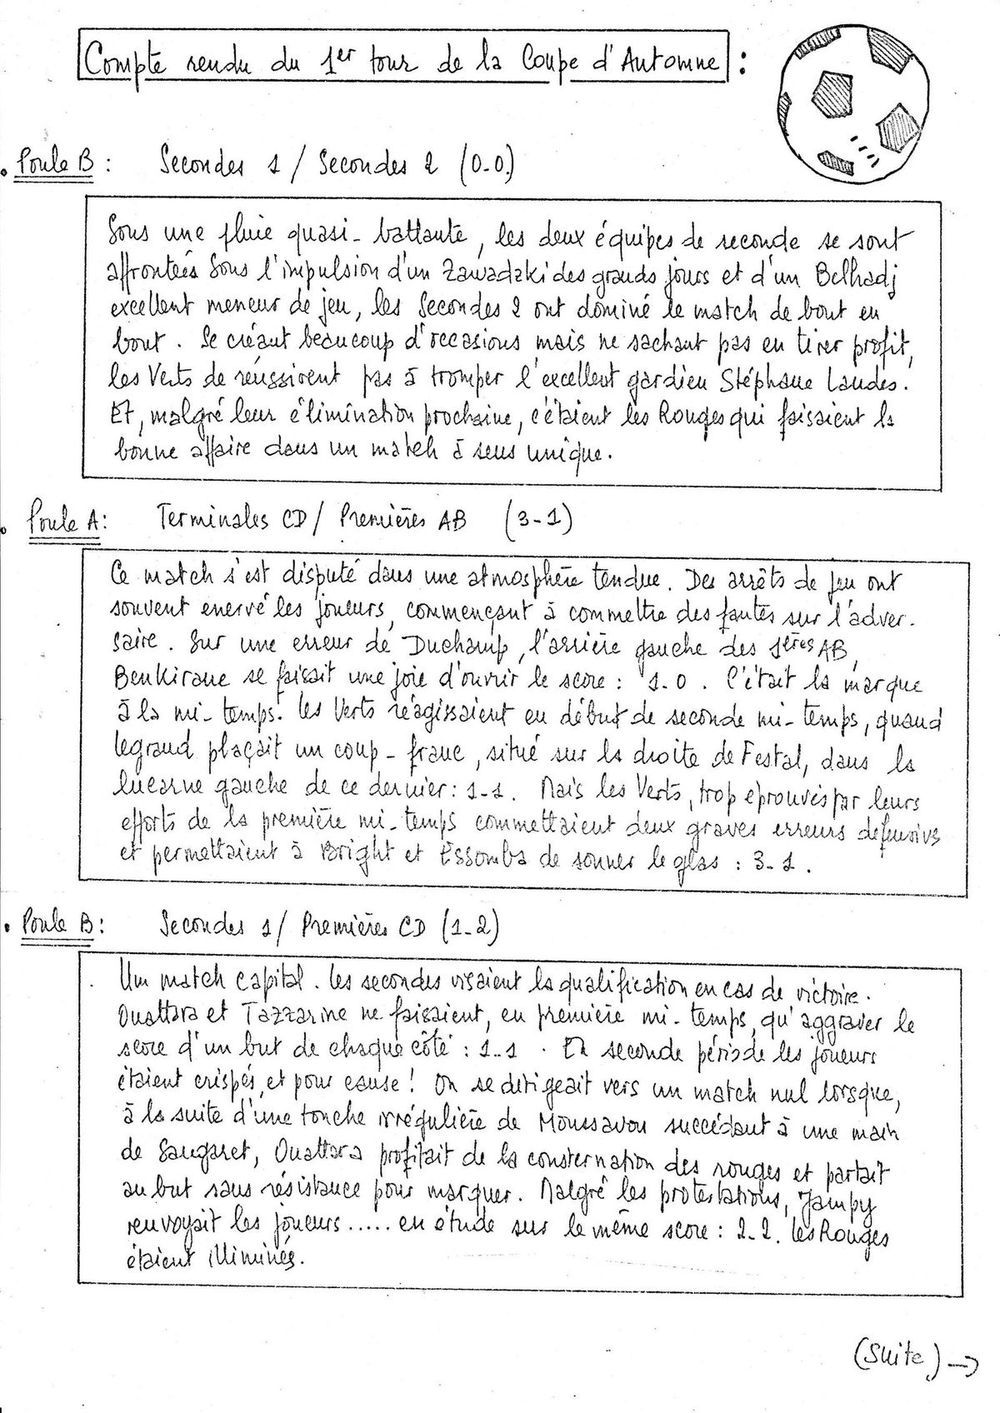 Compte rendu du 1er tour de la Coupe d'Automne :
• Poule B : Secondes 1 / Secondes 2 (0-0)
Sous une pluie quasi-battante, les deux équipes de seconde se sont
affrontées Sous l'impulsion d'un Zawadzki des grands jours et d'un Belhadj
excellent meneur de jeu, les Secondes 2 ont dominé le match de bout en
bout. Se créant beaucoup d'occasions mais ne sachant pas en tirer profit,
les Verts de réussirent pas à tromper l'excellent gardien Stéphane Landes.
Et, malgré leur élimination prochaine, c'étaient les Rouges qui faisaient la
bonne affaire dans un match à sens unique.
• Poule A : Terminales CD / Premières AB (3-1)
Ce match s'est disputé dans une atmosphère tendue. Des arrêts de jeu ont
souvent enervé les joueurs, commençant à commettre des fautes sur l'adver-
saire. Sur une erreur de Duchamp, l'arrière gauche des 1ères AB,
Benkirane se faisait une joie d'ouvrir le score : 1-0. C'était la marque
à la mi-temps. les Verts réagissaient en début de seconde mi-temps, quand
legrand plaçait un coup-franc, situé sur la droite de Festal, dans la
lucarne gauche de ce dernier : 1-1. Mais les Verts, trop eprouvés par leurs
efforts de la première mi-temps commettaient deux graves erreurs defensives
et permettaient à Bright et Essomba de sonner le glas : 3-1.
• Poule B : Secondes 1 / Premières CD (1-2)
Un match capital. les secondes visaient la qualification en cas de victoire.
Ouattara et Tazzarine ne faisaient, en première mi-temps, qu'aggraver le
score d'un but de chaque côté : 1-1. En seconde période les joueurs
étaient crispés, et pour cause ! On se dirigeait vers un match nul lorsque,
à la suite d'une touche irrégulière de Moussavou succédant à une main
de Saugaret, Ouattara profitait de la consternation des rouges et partait
au but sans résistance pour marquer. Malgré les protestations, Jampy
renvoyait les joueurs ..... en étude sur le même score : 2-2. les Rouges
étaient illiminés.
(Suite) →